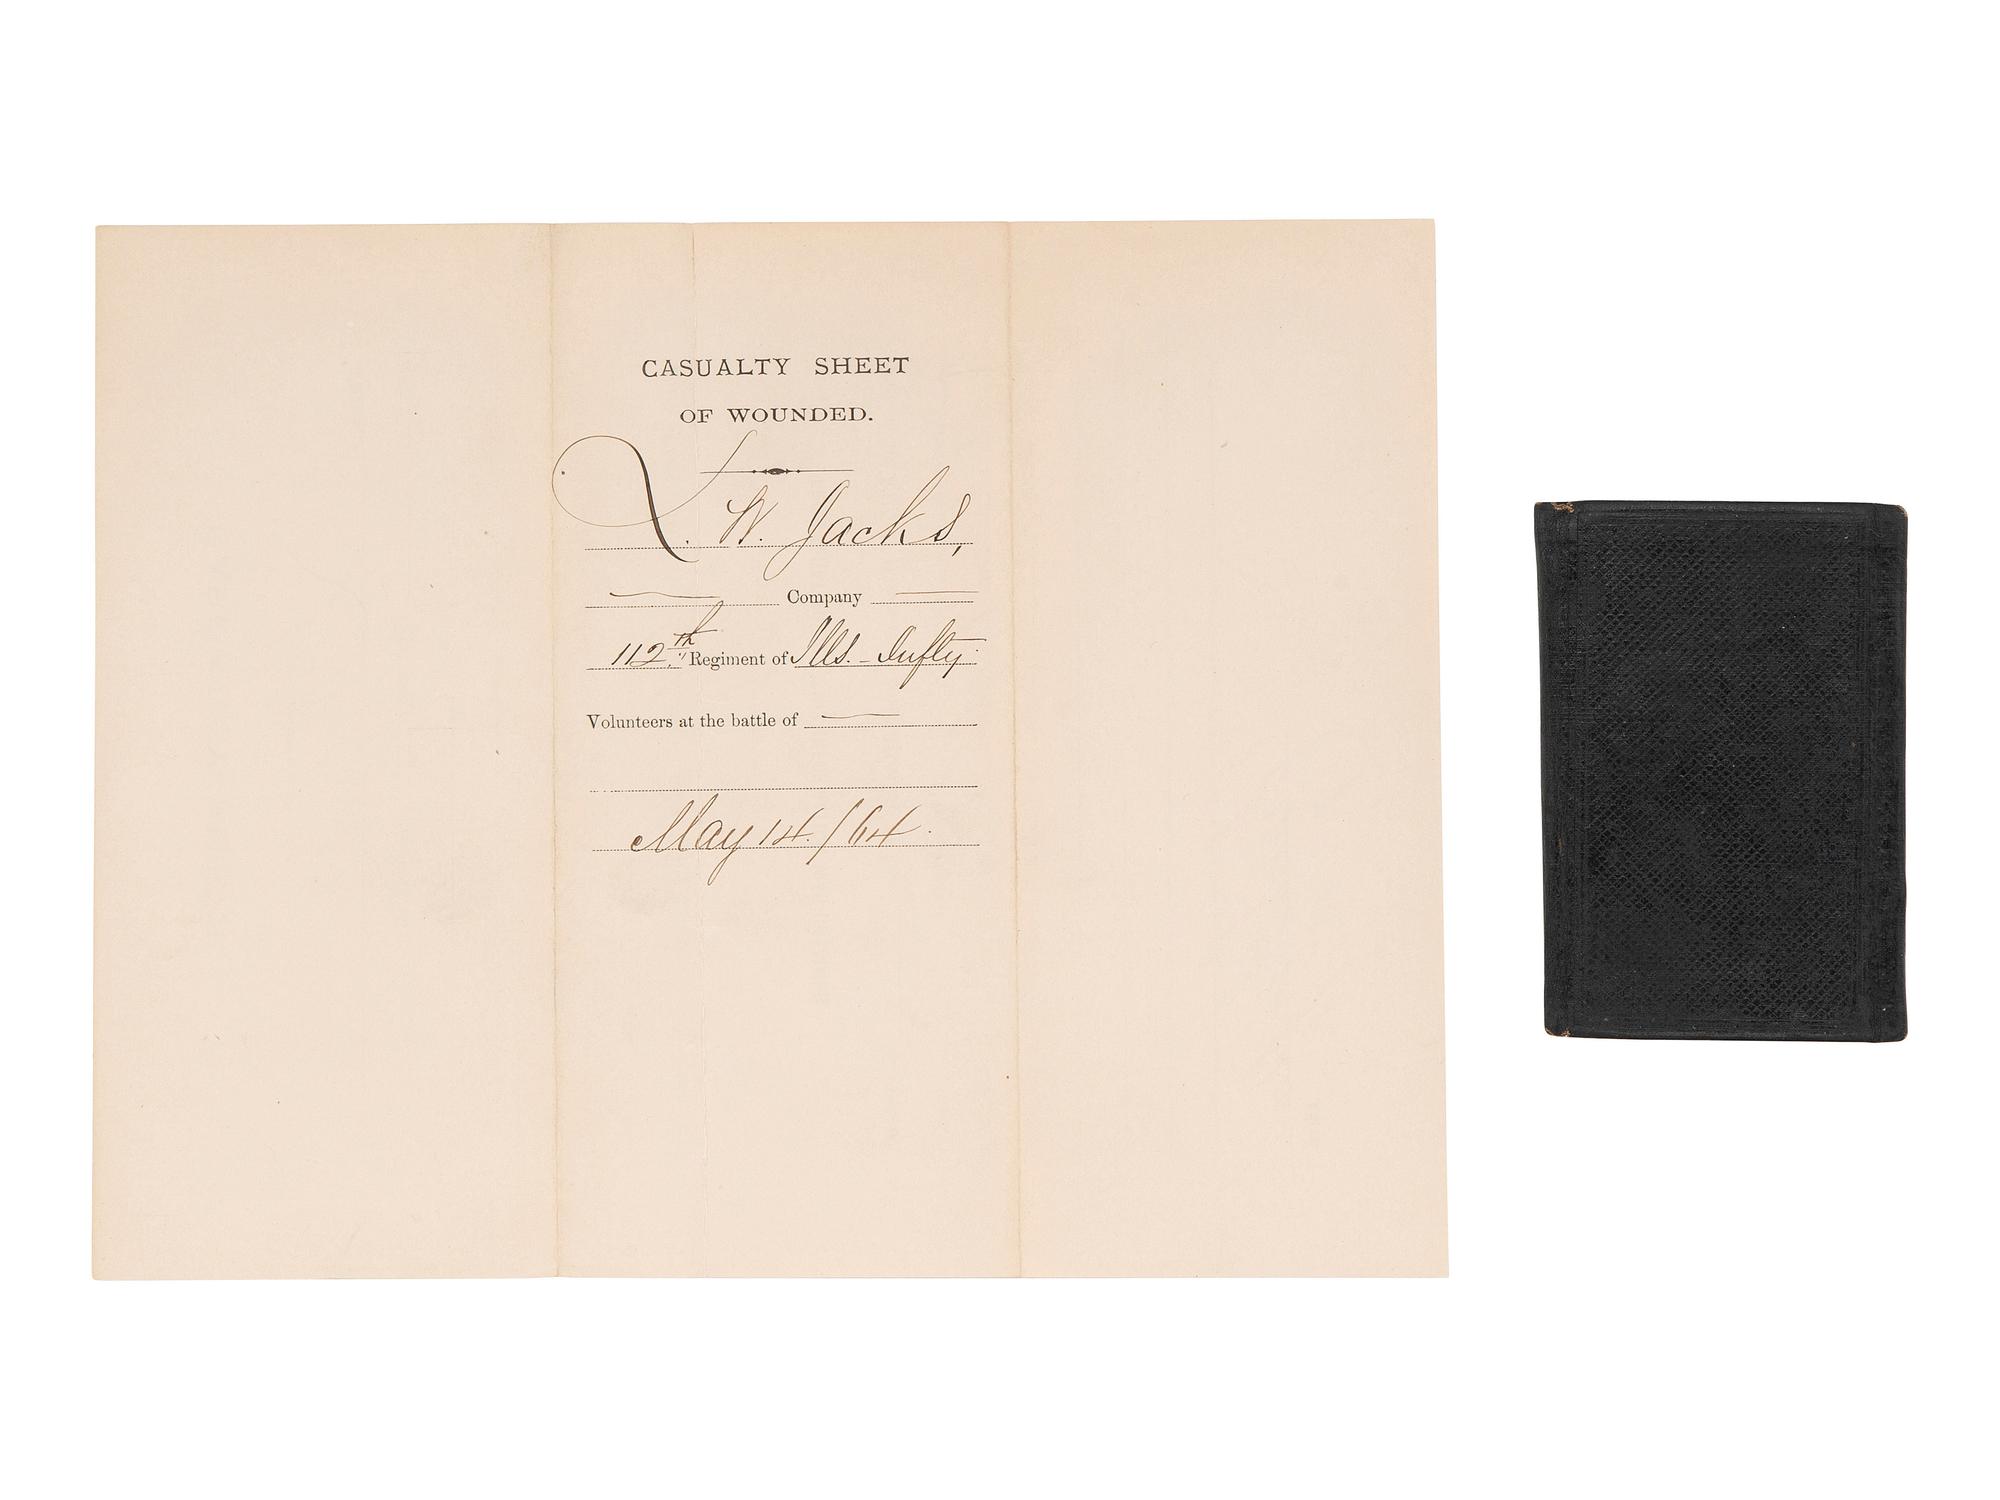 CASUALTY SHEET
OF WOUNDED.
W. Jacks,
Company
112th Regiment of Ills. Infty
Volunteers at the battle of
May 14./64.